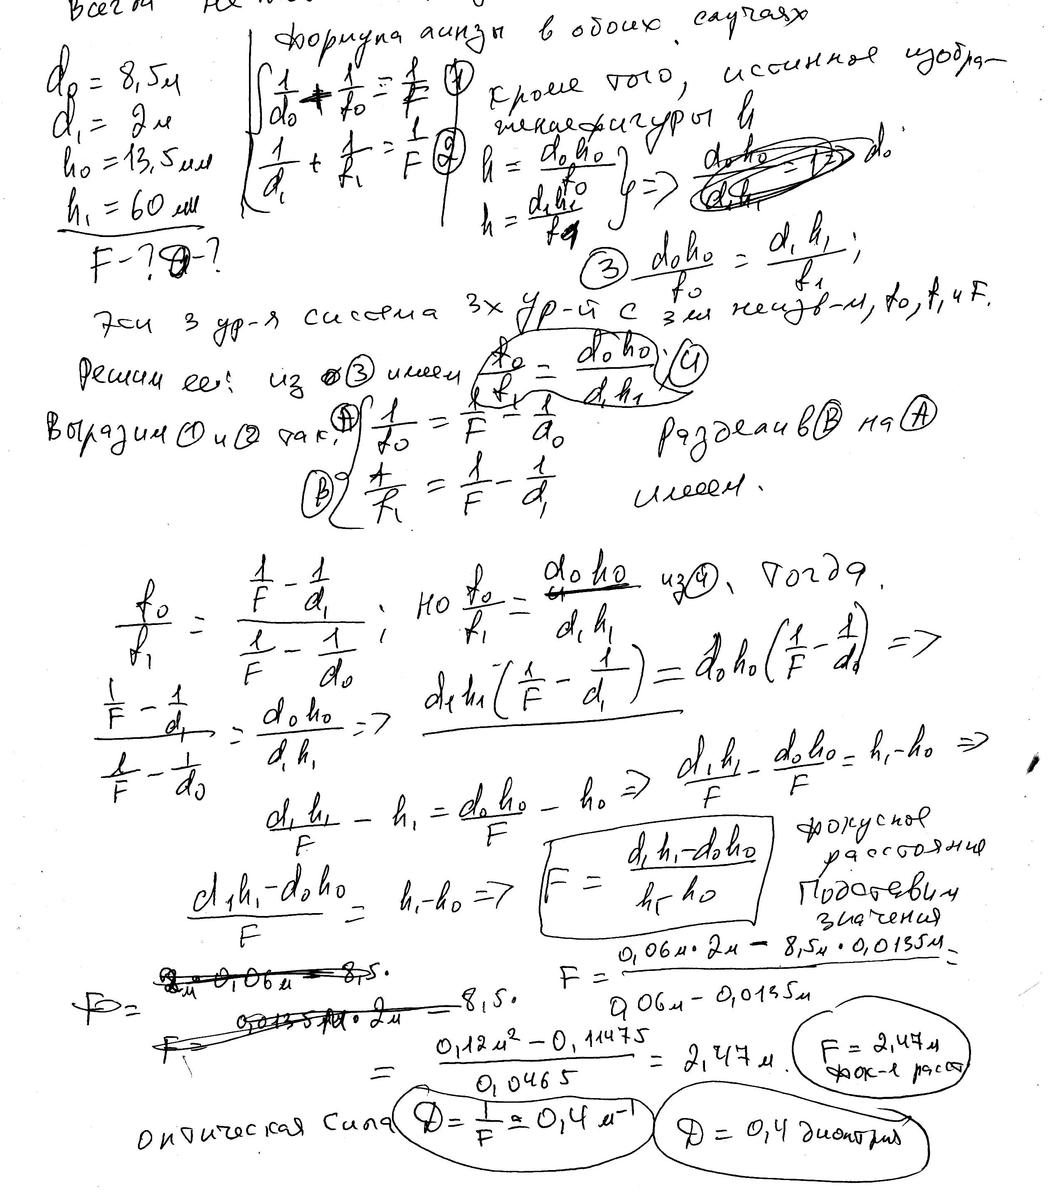 Всегда не
d₀ = 8,5м
d₁ = 2м
h₀ = 13,5мм
h₁ = 60мм
F-? D-?
Формула линзы в обоих случаях
1/d₀ + 1/f₀ = 1/F ①
1/d₁ + 1/f₁ = 1/F ②
Кроме того, истинное изобра-
жение фигуры h
h = d₀h₀/f₀
h = d₁h₁/f₁ } =>
③ d₀h₀/f₀ = d₁h₁/f₁;
Эти 3 ур-я система 3х ур-й с 3мя неизв-м, f₀, f₁ и F.
Решим её: из ③ имеем f₀/f₁ = d₀h₀/d₁h₁; ④
Выразим ① и ② так:
Ⓐ 1/f₀ = 1/F - 1/d₀
Ⓑ 1/f₁ = 1/F - 1/d₁
Разделив Ⓑ на Ⓐ
имеем.
f₀/f₁ = (1/F - 1/d₁)/(1/F - 1/d₀); но f₀/f₁ = d₀h₀/d₁h₁ из ④, тогда
(1/F - 1/d₁)/(1/F - 1/d₀) = d₀h₀/d₁h₁ => d₁h₁(1/F - 1/d₁) = d₀h₀(1/F - 1/d₀) =>
d₁h₁/F - h₁ = d₀h₀/F - h₀ => d₁h₁/F - d₀h₀/F = h₁-h₀ =>
(d₁h₁-d₀h₀)/F = h₁-h₀ => F = (d₁h₁-d₀h₀)/(h₁-h₀)
фокусное
расстояние
Подставим
значения
F = (0,06м·2м - 8,5м·0,0135м)/(0,06м-0,0135м) =
F =
= (0,12м² - 0,11475)/0,0465 = 2,47м.
F = 2,47м
фок-е расст
оптическая сила D = 1/F ≃ 0,4 м⁻¹
D = 0,4 диоптрия